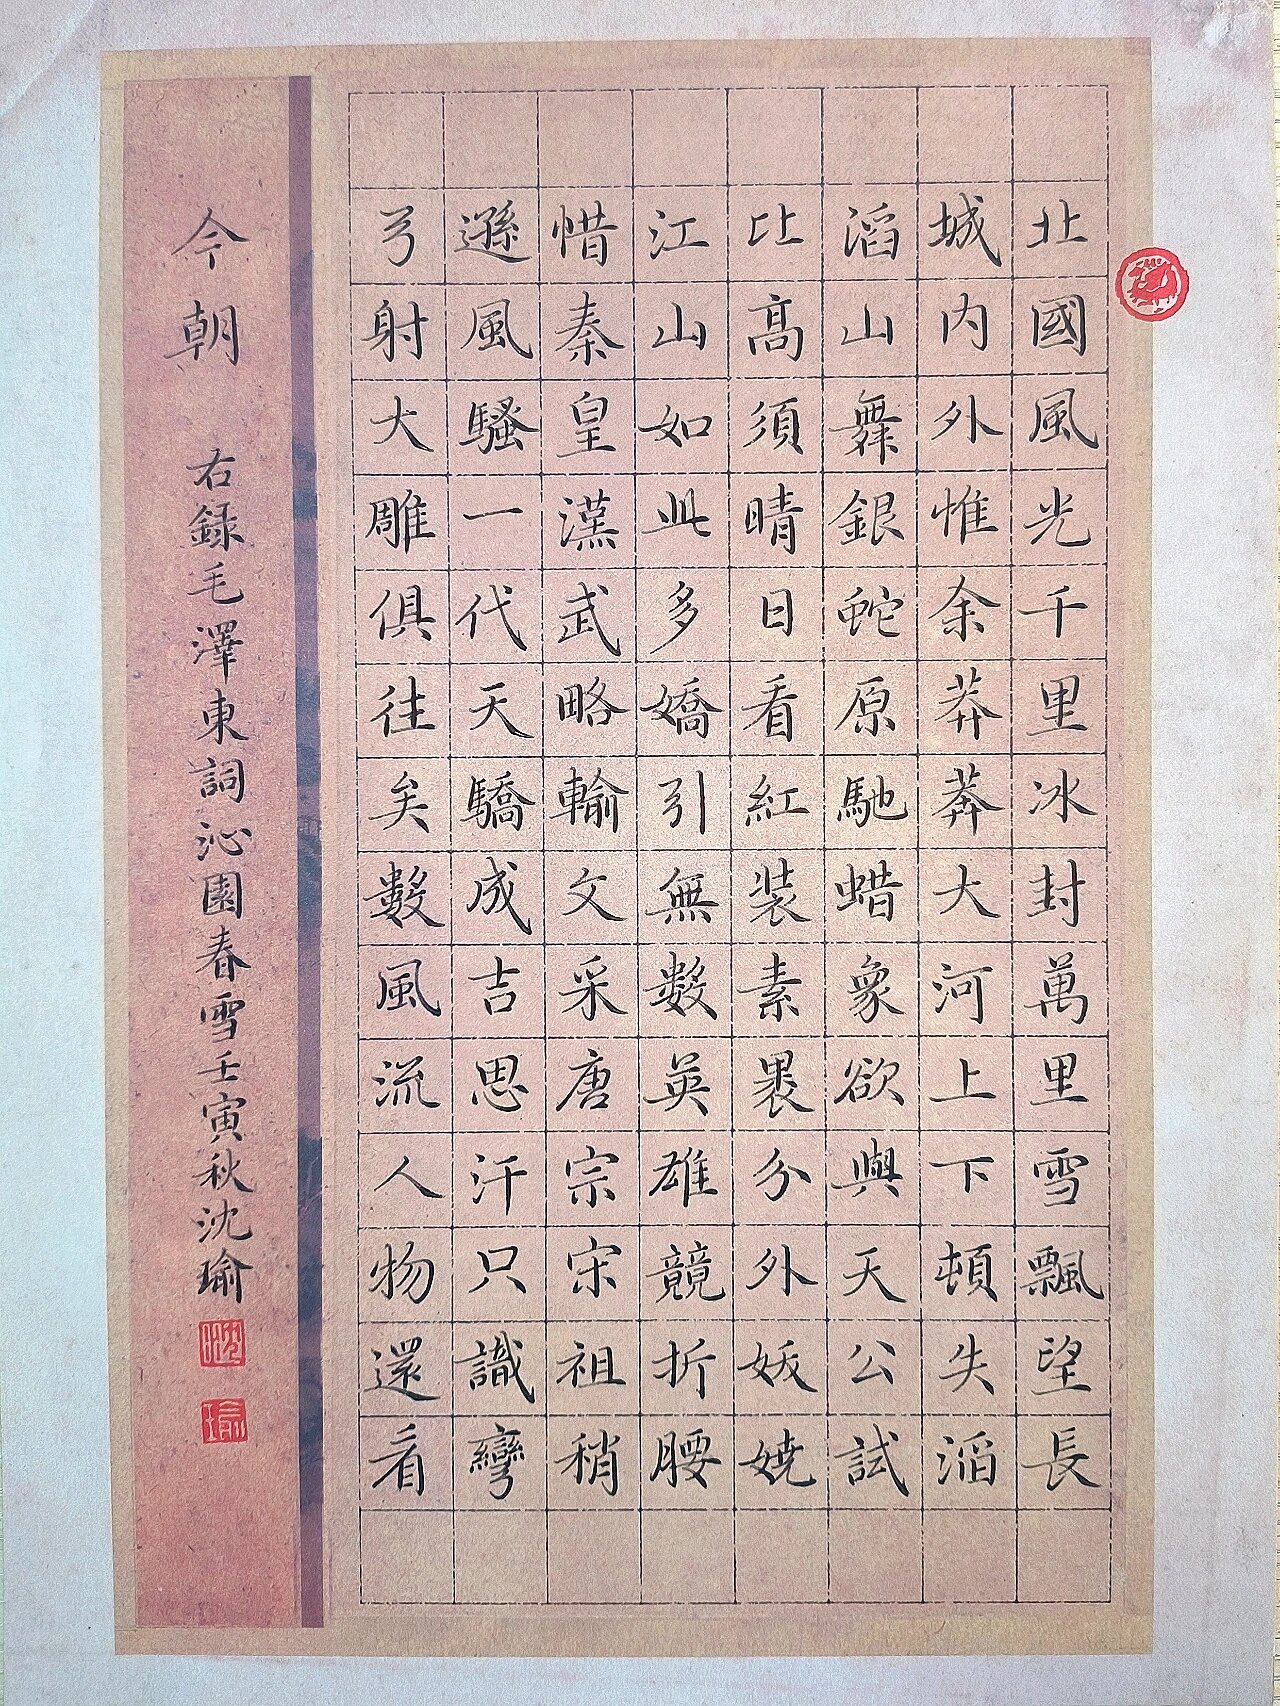 北國風光千里冰封萬里雪飄望長
城内外惟余莽莽大河上下頓失滔
滔山舞銀蛇原馳蜡象欲與天公試
比高須晴日看紅装素裹分外妖嬈
江山如此多嬌引無數英雄競折腰
惜秦皇漢武略輸文采唐宗宋祖稍
遜風騷一代天驕成吉思汗只識彎
弓射大雕俱往矣數風流人物還看
今朝
右録毛澤東詞沁園春雪壬寅秋沈瑜
沈
瑜